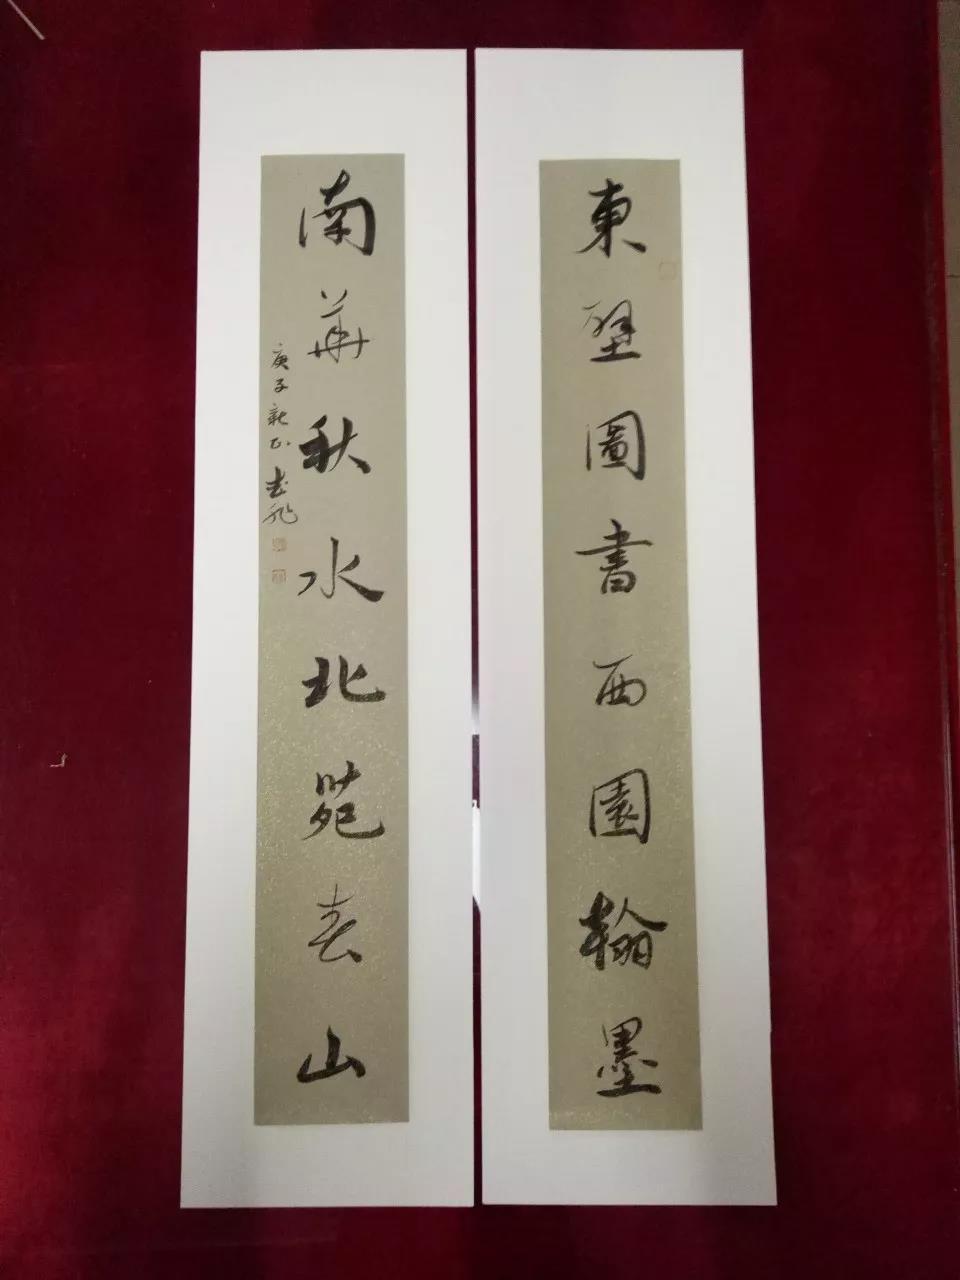 東壁圖書西園翰墨
南華秋水北苑春山
庚子新正